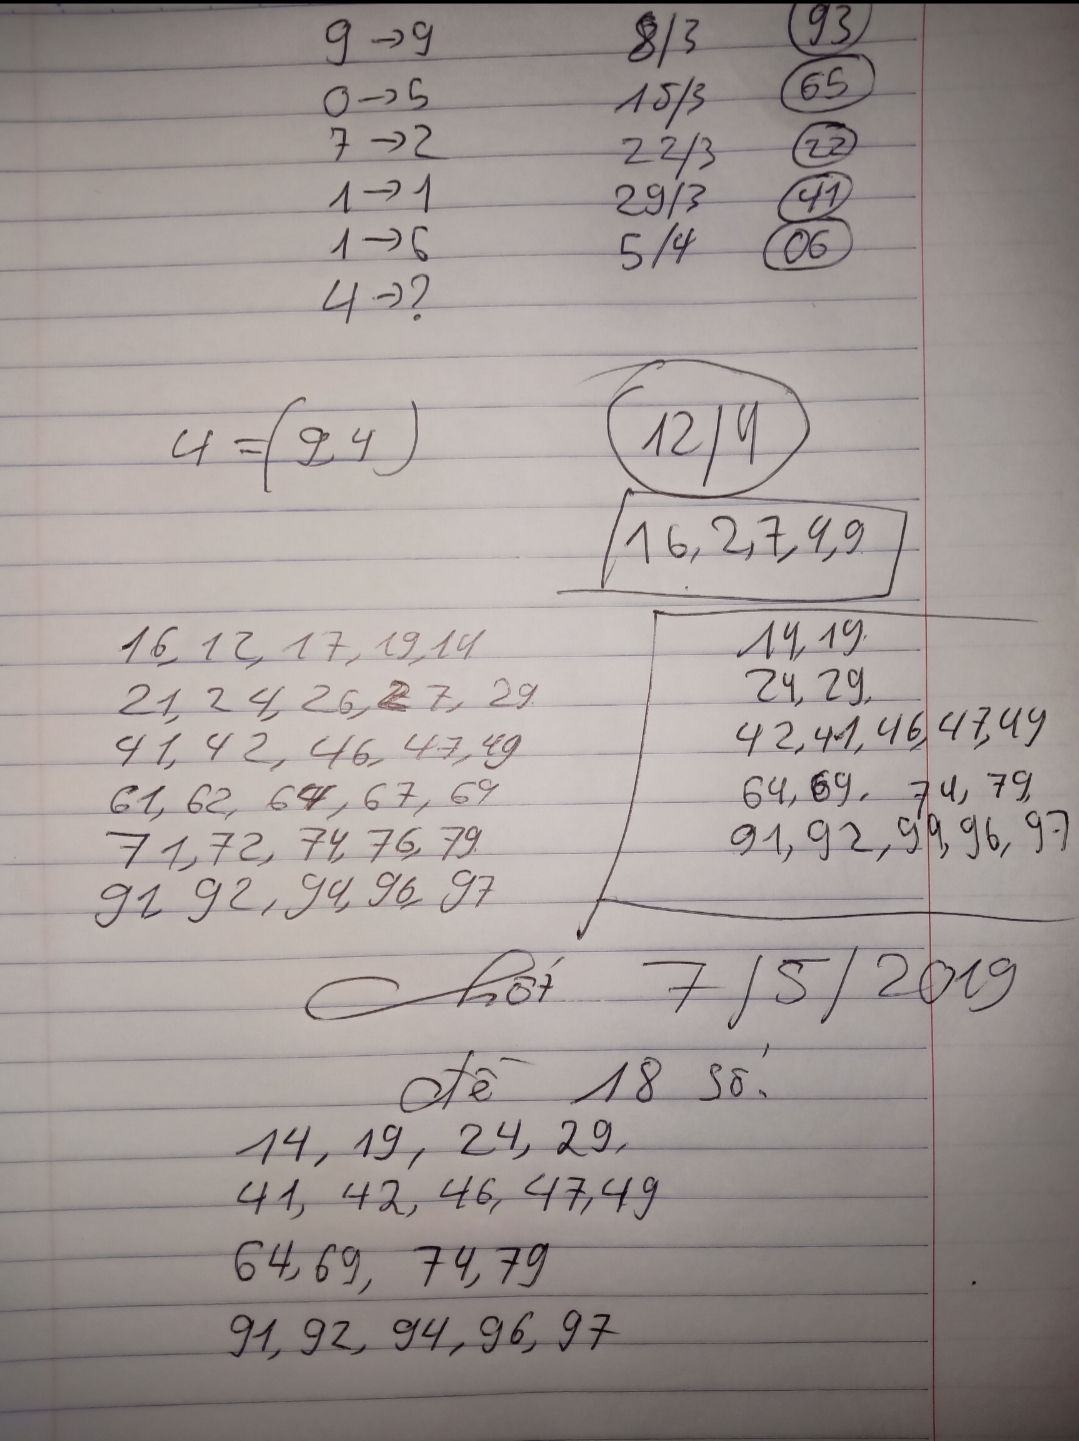 9 → 9 8/3 93
0 → 5 15/3 65
7 → 2 22/3 22
1 → 1 29/3 41
1 → 6 5/4 06
4 → ?
4 = (9,4) 12/4
16, 2, 7, 4, 9
16, 12, 17, 19, 14
21, 24, 26, 27, 29
41, 42, 46, 47, 49
61, 62, 64, 67, 69
71, 72, 74, 76, 79
91 92, 94, 96, 97
14, 19.
24, 29.
42, 41, 46, 47, 49
64, 69. 74, 79,
91, 92, 94, 96, 97
Chốt 7/5/2019
đề 18 số.
14, 19, 24, 29,
41, 42, 46, 47, 49
64, 69, 74, 79
91, 92, 94, 96, 97